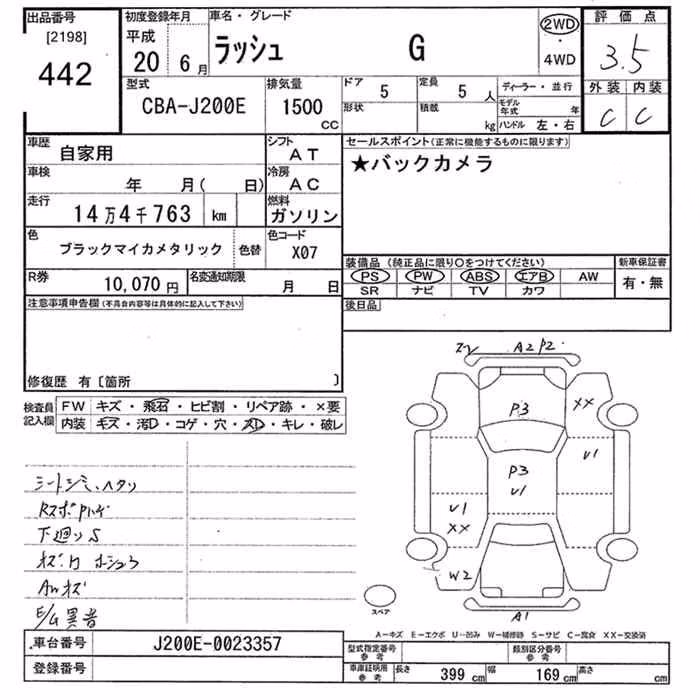 出品番号 初度登録年月 車名・グレード 2WD 評価点
[2198] 平成
442 20 6月 ラッシュ G ・ 4WD 3.5
型式 排気量 ドア 5 定員 5人 ディーラー・並行 外装 内装
CBA-J200E 1500 cc 形状 積載 kg モデル年式 年 C C
ハンドル 左・右
車歴 自家用 シフト AT セールスポイント(正常に機能するものに限ります)
車検 年 月( 日) 冷房 AC ★バックカメラ
走行 14万4千763 km 燃料 ガソリン
色 ブラックマイカメタリック 色替 色コード X07
装備品 (純正品に限り○をつけてください) 新車保証書
R券 10,070円 名変通知期限 月 日 PS PW ABS エアB AW 有・無
SR ナビ TV カワ
注意事項申告欄(不具合内容等は具体的に記入して下さい) 後日品
修復歴 有〔箇所 〕
検査員記入欄 FW キズ・飛石・ヒビ割・リペア跡・×要
内装 キズ・汚D・コゲ・穴・スレ・キレ・破レ
A2 P2
P3
XX
U1
P3
U1
U1
XX
W2
A1
スペア
シートシミ、ヘタリ
下廻りS
AWキズ
E/G異音
A-キズ E-エクボ U-凹み W-補修跡 S-サビ C-腐食 XX-交換済
車台番号 J200E-0023357 型式指定番号参考 類別区分番号参考
登録番号 車庫証明用参考 長さ 399cm 幅 169cm 高さ cm